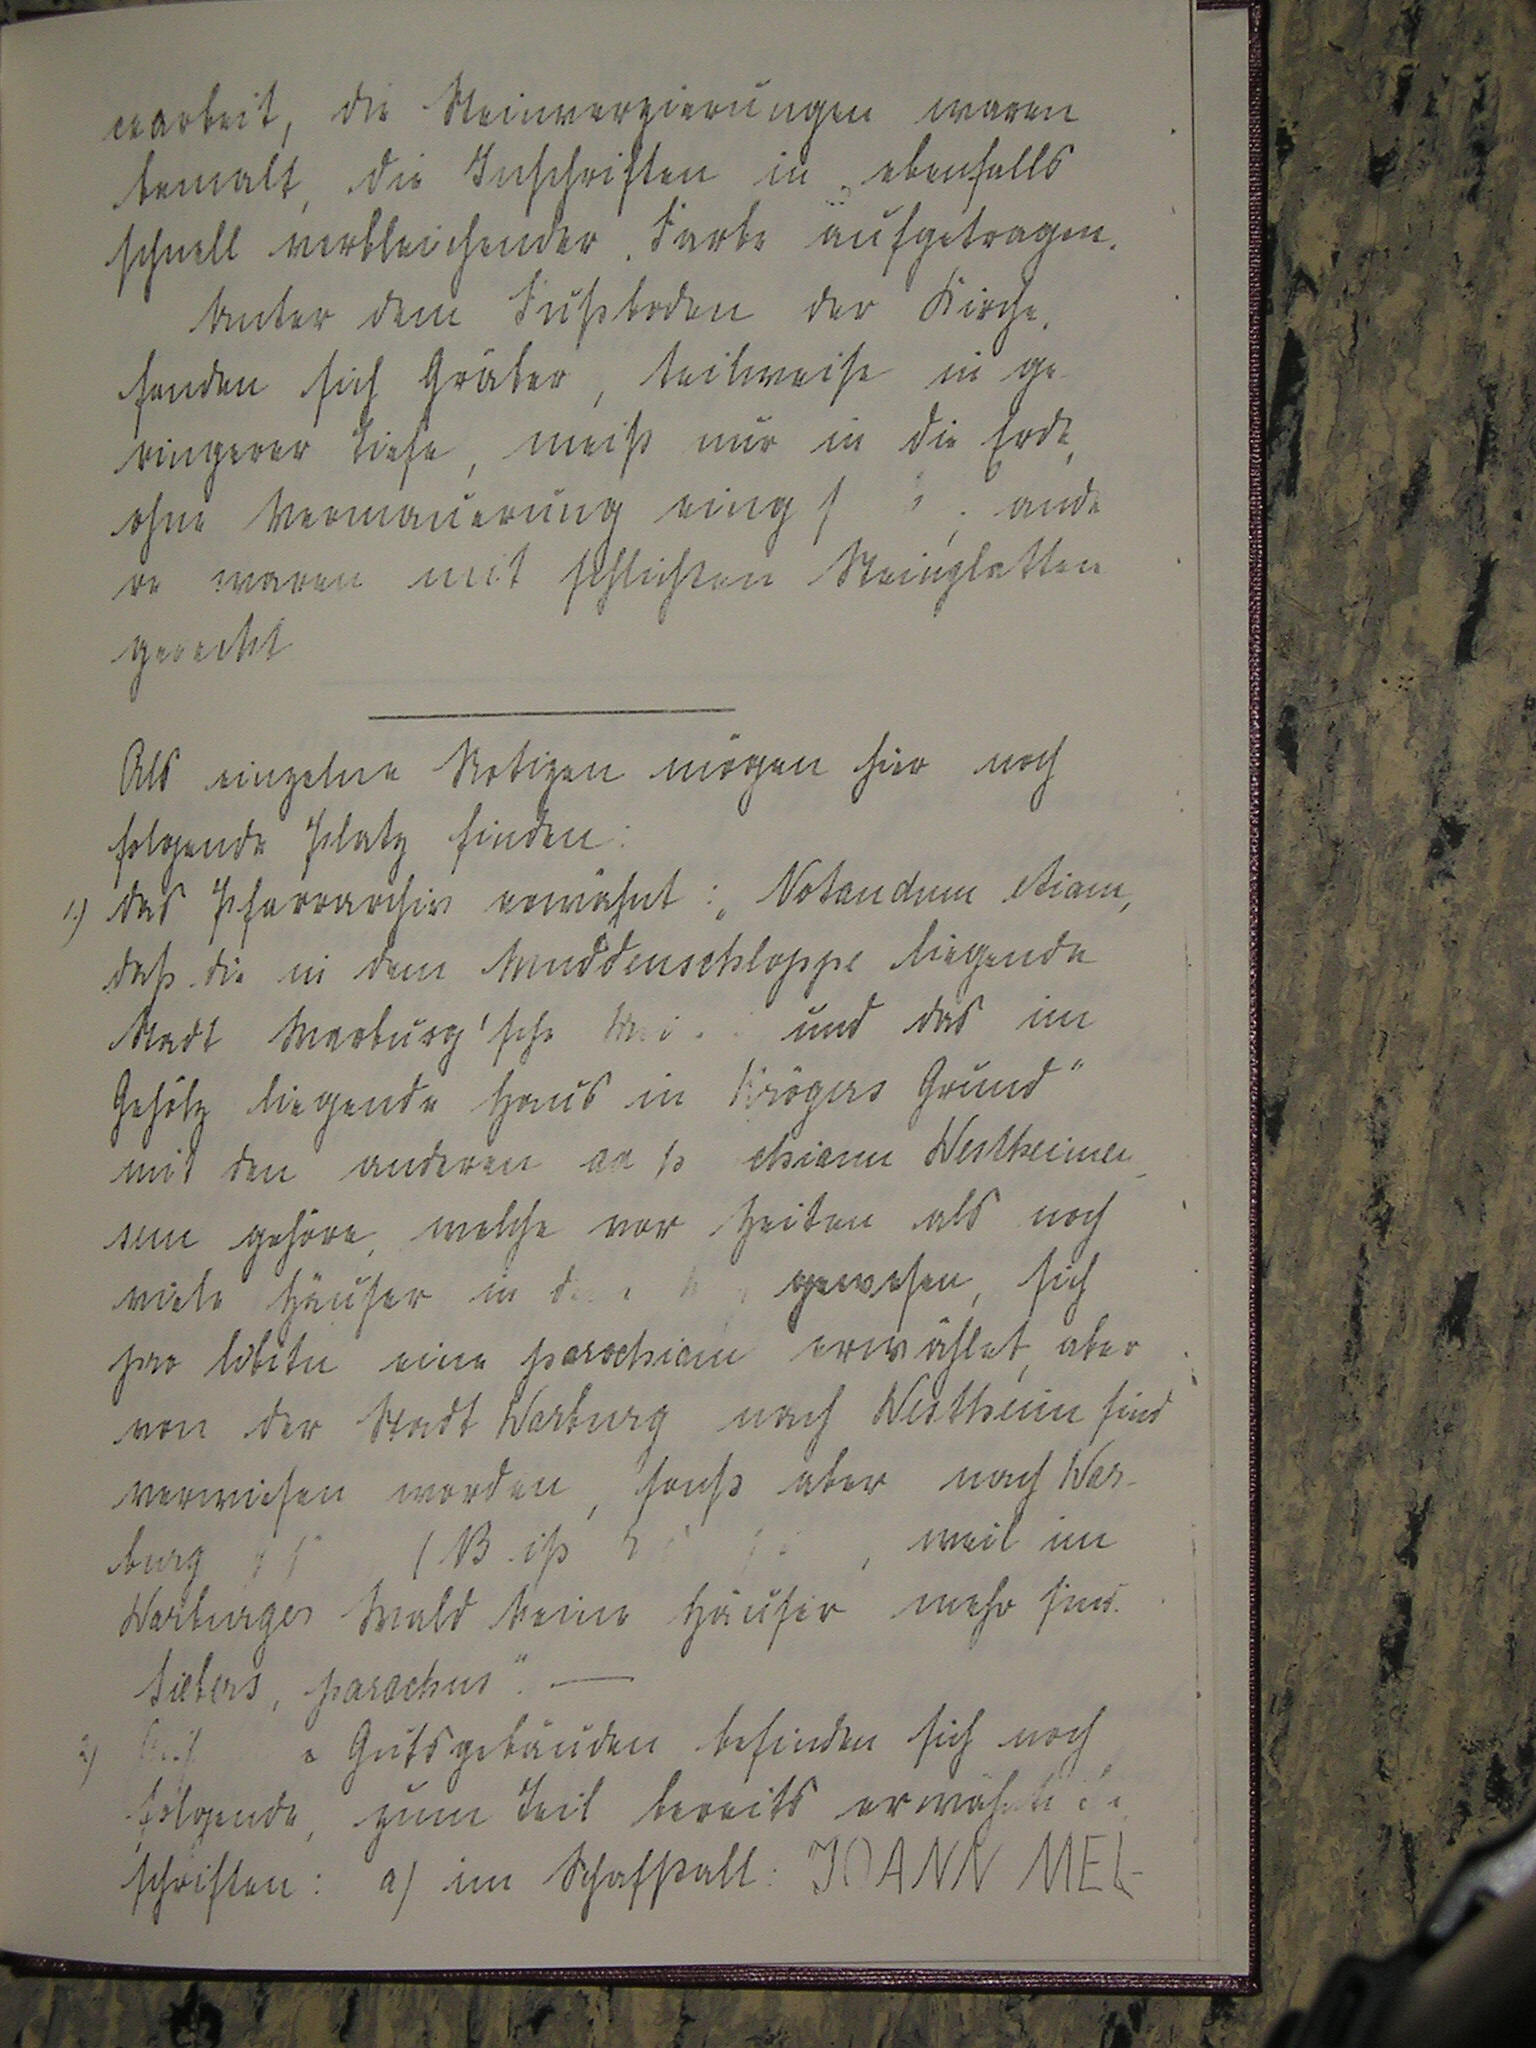 rearbeit, die Steinverzierungen waren
bemalt, die Inschriften in ebenfalls
schnell verbleichender Farbe aufgetragen.
Unter dem Fußboden der Kirche
fanden sich Gräber, teilweise in ge-
ringerer Tiefe, meist nur in die Erde,
ohne Vermauerung ande
re waren mit schlichten Steinplatten
Als einzelne Notizen mögen hier noch
folgende Platz finden:
1.) das Pfarrarchiv erwähnt: „Notandum etiam,
daß die in dem Muddenschloppe liegende
Stadt Warburg'sche und das im
Gehölz liegende Haus in Krögers Grund"
mit den anderen Westheimen
sem gehöre, welche vor Zeiten als noch
viele Häuser in gewesen, sich
pro libitu eine parochiam erwählet, aber
von der Stadt Warburg nach Westheim sind
verwiesen worden, sonst aber nach War-
burg (NB ist , weil im
Warburger Wald keine Häuser mehr sind.
Siebers, parochus". —
2) Gutsgebäuden befinden sich noch
folgende, zum Teil bereits erwähnte
schriften: a) im Schafstall: JOANN MEL-